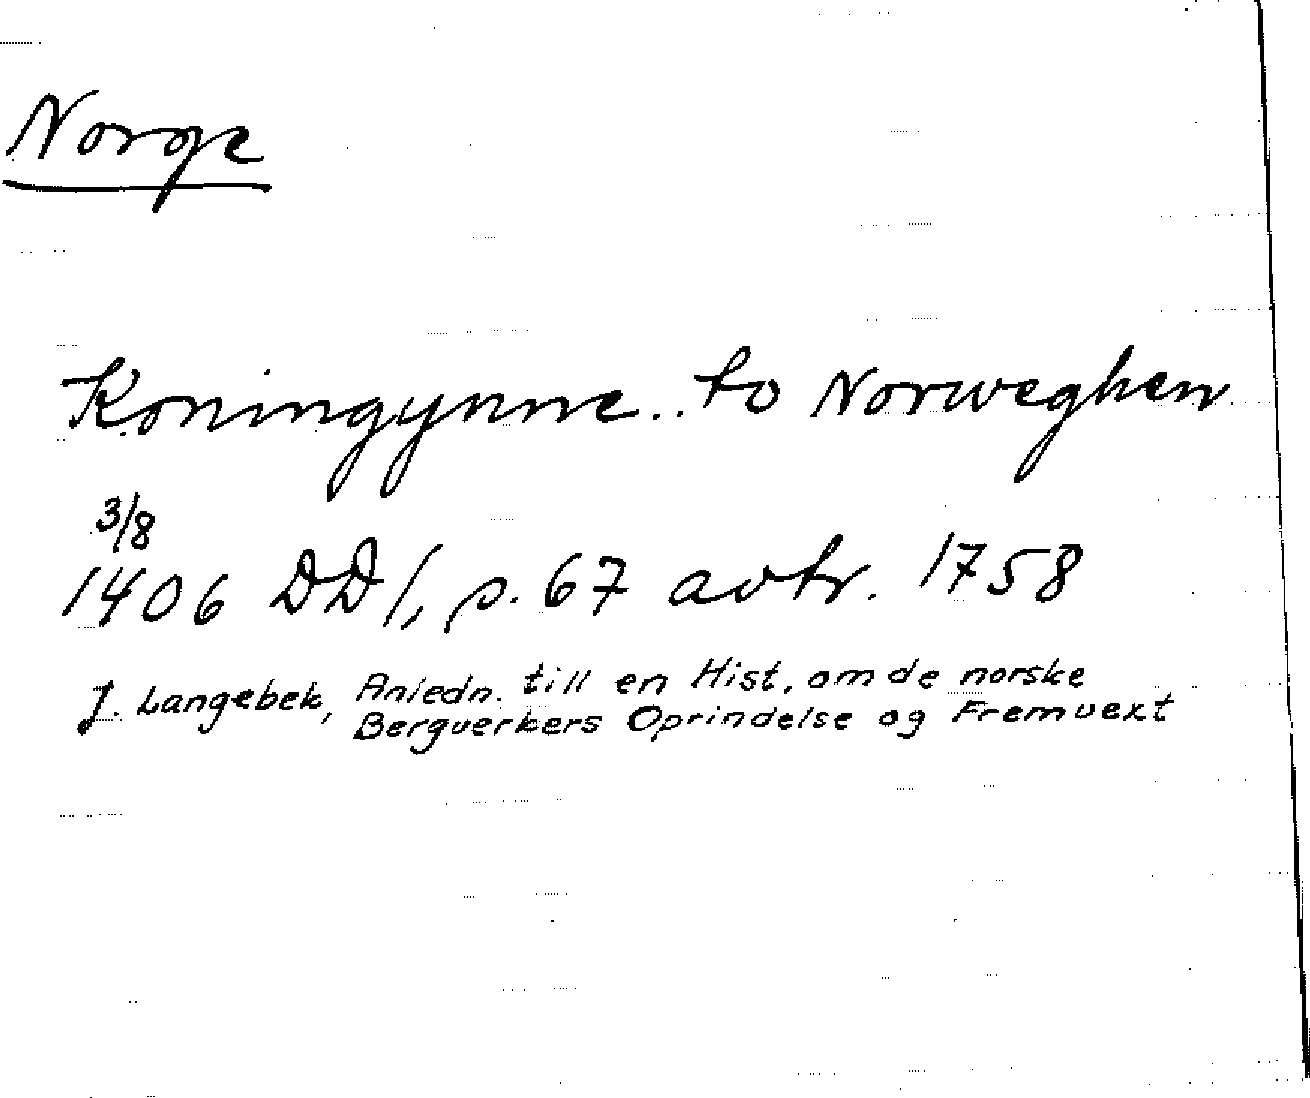 Norge
Koningynne .. to Norweghen
3/8
1406 DD/, p. 67 avtr. 1758
J. Langebek, Anledn. till en Hist, om de norske
Bergverkers Oprindelse og Fremvext